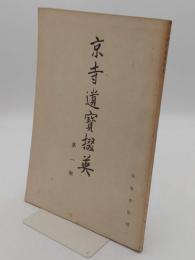 京寺遺寳掇英
第一輯